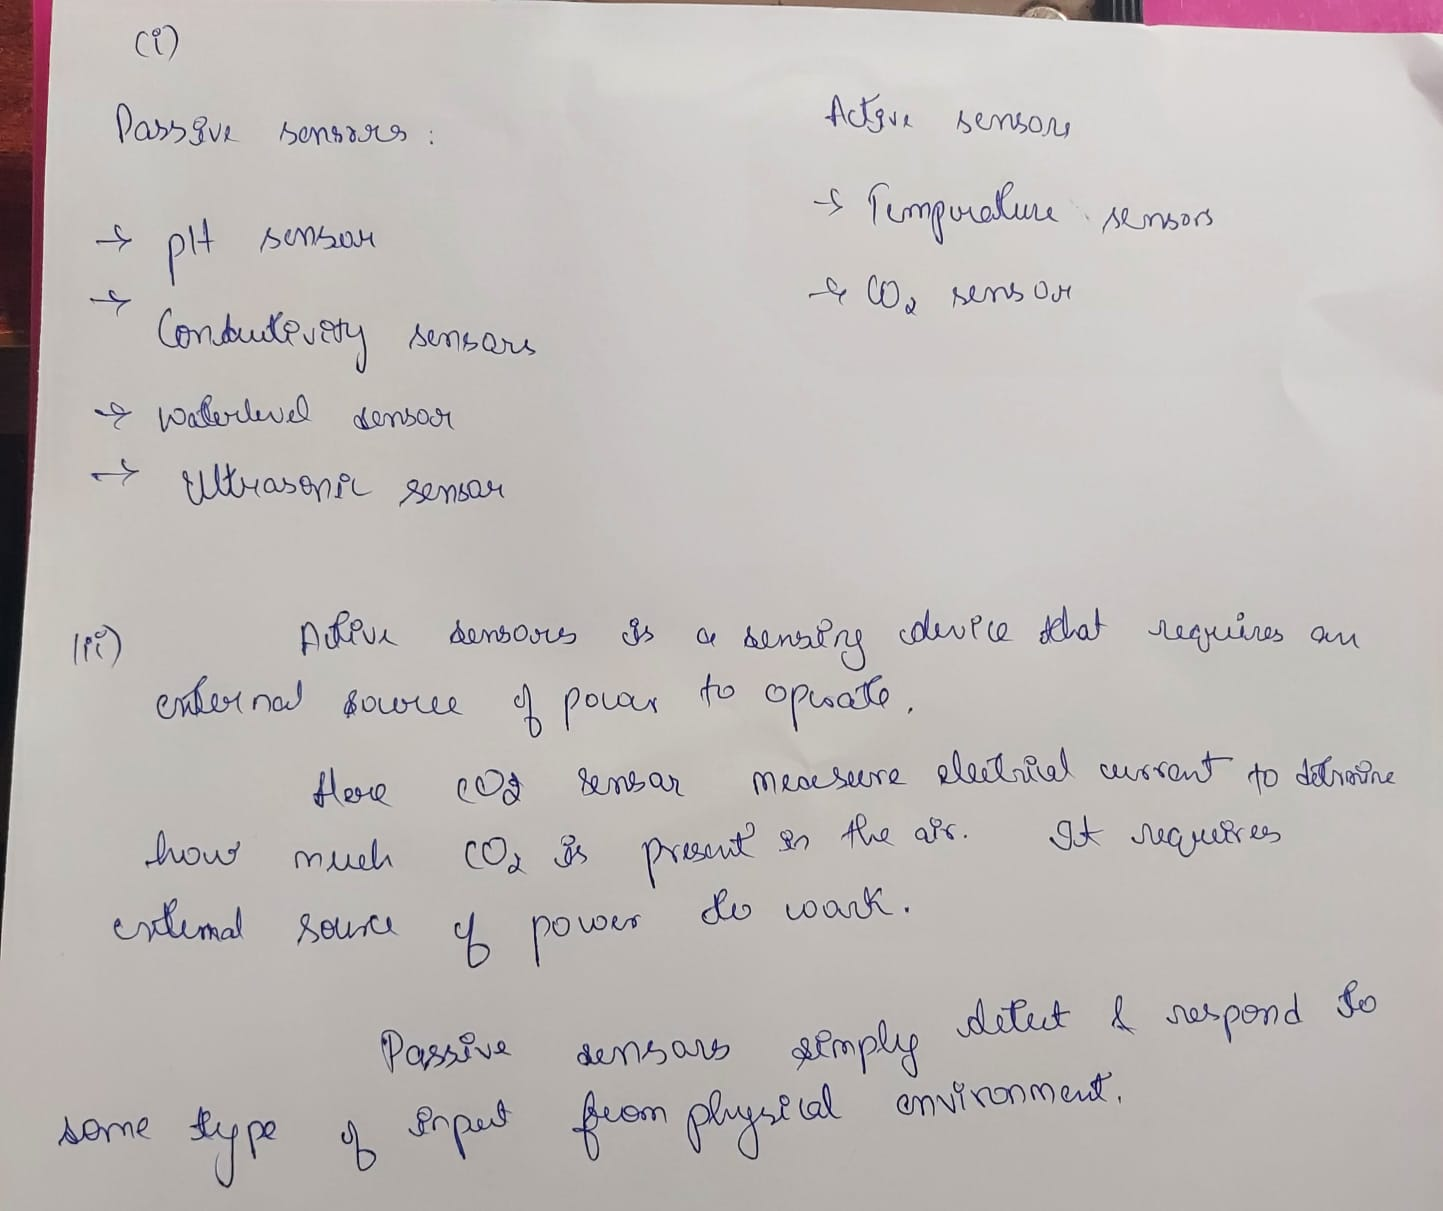 (i)
Passive sensors :
Active sensors
→ pH sensor
→ Temperature sensors
→ Conductivity sensors
→ CO2 sensor
→ Waterlevel sensor
→ Ultrasonic sensor
(ii) Active sensors is a sensing device that requires an
external source of power to operate.
Here CO2 sensor measure electrical current to determine
how much CO2 is present in the air. It requires
external source of power to work.
Passive sensors simply detect & respond to
some type of input from physical environment.